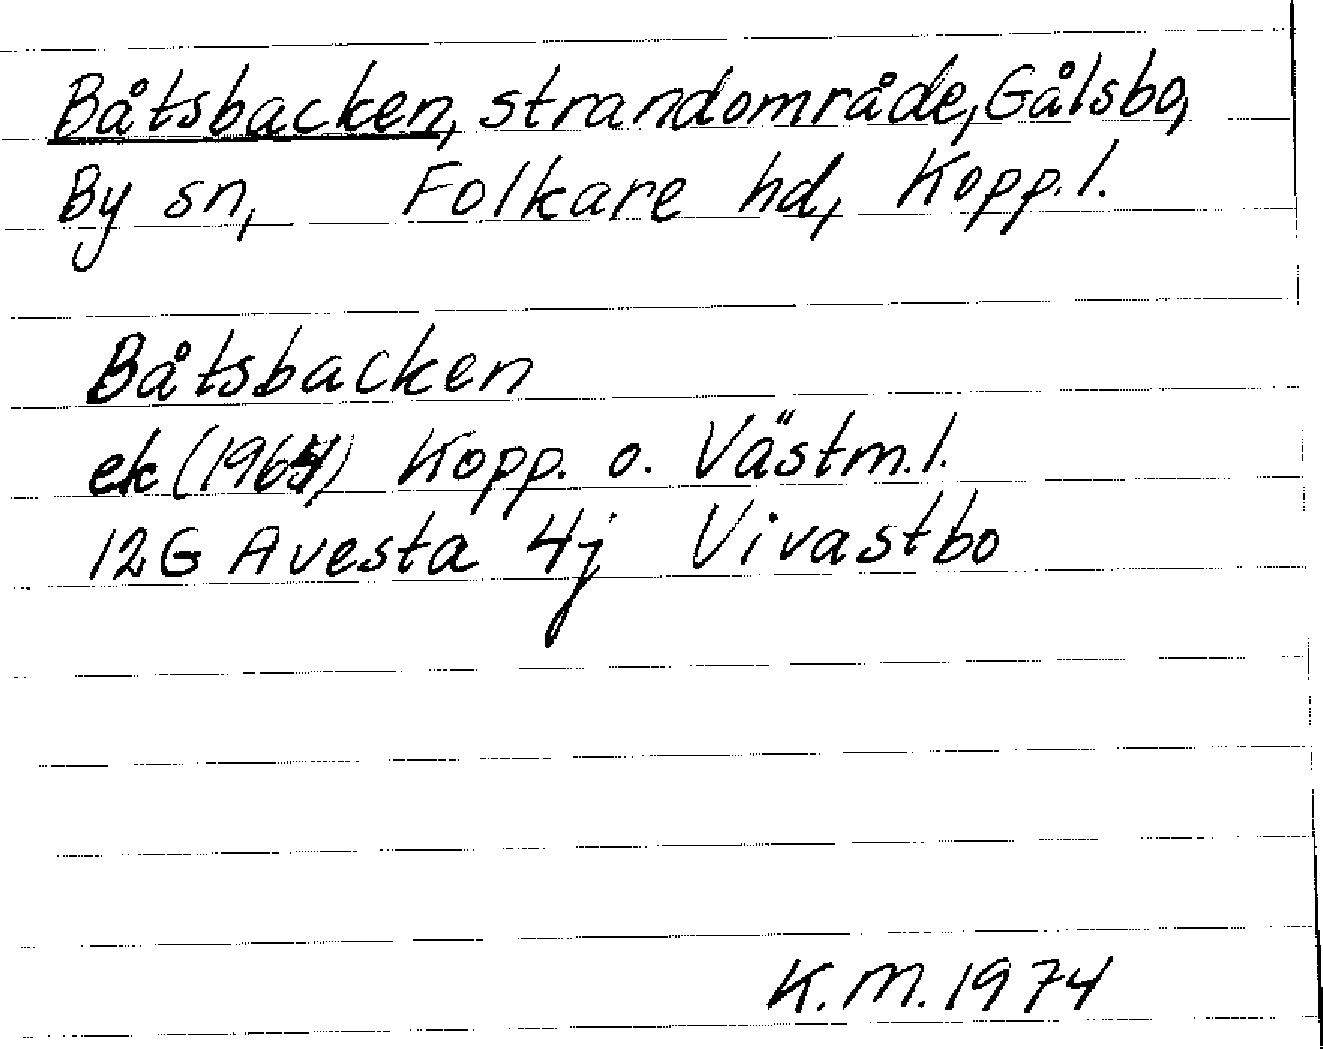 Båtsbacken, strandområde, Gålsbo,
By sn, Folkare hd, Kopp. l.
Båtsbacken
ek (1964) Kopp. o. Västm. l.
12G Avesta 4j Vivastbo
K. M. 1974